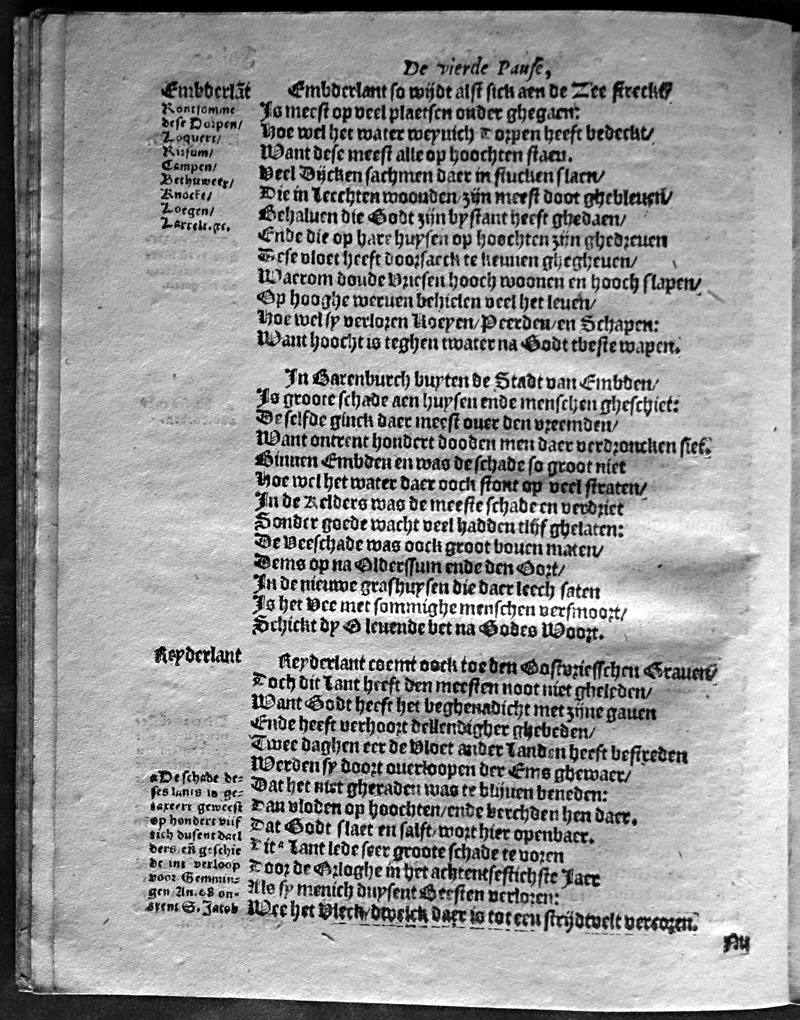 De vierde Pause,
Embderlāt
Rontsomme
dese Dorpen/
Loquert/
Risum/
Campen/
Bethuweer/
Knocke/
Loegen/
Larrelt.ꝛc.
Embderlant so wijdt alst sick aen de Zee streckt/
Is meest op veel plaetsen onder ghegaen:
Hoe wel het water weynich Dorpen heeft bedeckt/
Want dese meest alle op hoochten staen.
Veel Dijcken sachmen daer in stucken slaen/
Die in Leechten woonden/zijn meest doot ghebleuen/
Behaluen die Godt zijn bystant heeft ghedaen/
Ende die op hare huysen op hoochten zijn ghedreuen
Dese vloet heeft doorsaeck te kennen ghegheuen/
Waerom doude Vriesen hooch woonen en hooch slapen/
Op hooghe weruen behielen veel het leuen/
Hoe wel sy verloren Koeyen/Peerden/en Schapen:
Want hoocht is teghen twater na Godt tbeste wapen.
In Garenburch buyten de Stadt van Embden/
Is groote schade aen huysen ende menschen gheschiet:
De selfde ginck daer meest ouer den vreemden/
Want ontrent hondert dooden men daer verdroncken siet.
Binnen Embden en was de schade so groot niet
Hoe wel het water daer oock stont op veel straten/
In de Kelders was de meeste schade en verdriet
Sonder goede wacht veel hadden tlijf ghelaten:
De Veeschade was oock groot bouen maten/
Dems op na Olderssum ende den Oort/
In de nieuwe grashuysen die daer leech saten
Is het Vee met sommighe menschen versmoort/
Schickt dy O leuende bet na Godes Woort.
Reyderlant
Reyderlant coemt oock toe den Oostvriesschen Grauen/
Doch dit Lant heeft den meesten noot niet gheleden/
Want Godt heeft het beghenadicht met zijne gauen
Ende heeft verhoort dellendigher ghebeden/
Twee daghen eer de Vloet ander Landen heeft bestreden
Werden sy doort ouerloopen der Ems ghewaer/
Dat het niet gheraden was te blijuen beneden:
Dan vloden op hoochten/ende berchden hen daer.
Dat Godt slaet en salft/wort hier openbaer.
Dit ᵃ Lant lede seer groote schade te voren
Door de Orloghe in het achtentsestichste Jaer
Als sy menich duysent Beesten verloren:
Wee het Vleck/dwelck daer is tot een strijdtvelt vercoren.
a De schade de-
ses lants is ge-
taxeert geweest
op hondert vijf
tich dusent dael
ders, eñ geschie
de int verloop
voor Gemmin-
gen An. 68 on-
trent S. Jacob
Nu